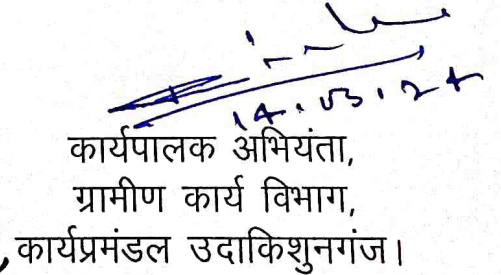 14.03.24
कार्यपालक अभियंता,
ग्रामीण कार्य विभाग,
कार्यप्रमंडल उदाकिशुनगंज।